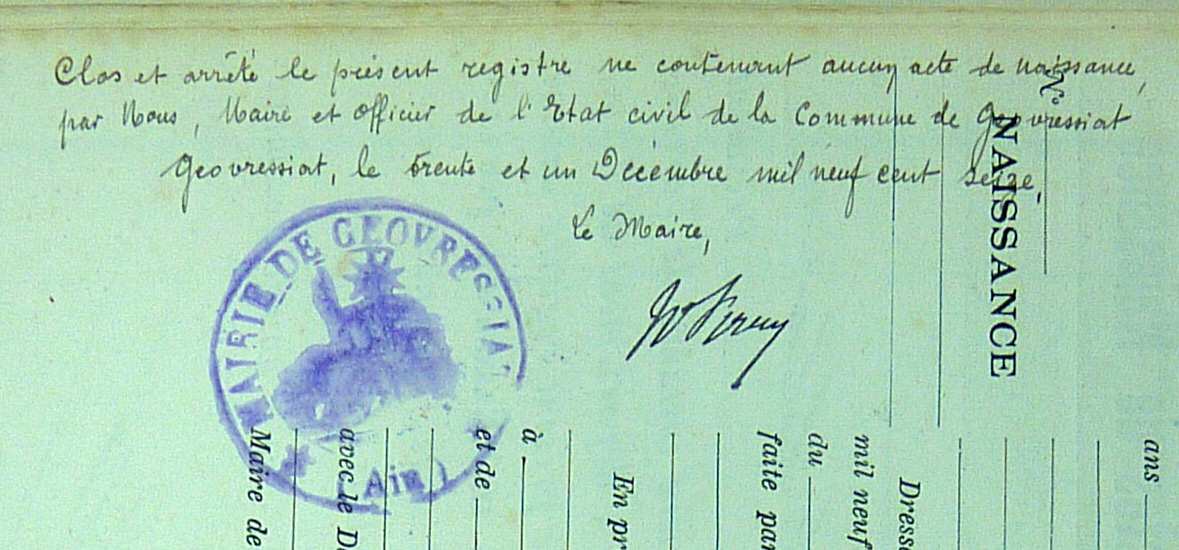 Clos et arrêté le présent registre ne contenant aucun acte de naissance,
par Nous, Maire et officier de l'Etat civil de la Commune de Geovressiat
Geovressiat, le trente et un Décembre mil neuf cent seize
Le Maire,
MAIRIE DE GEOVRESSIAT
Ain
N°
NAISSANCE
ans
Dressé
mil neuf
du
faite par
En pr
à
et de
avec le D
Maire de